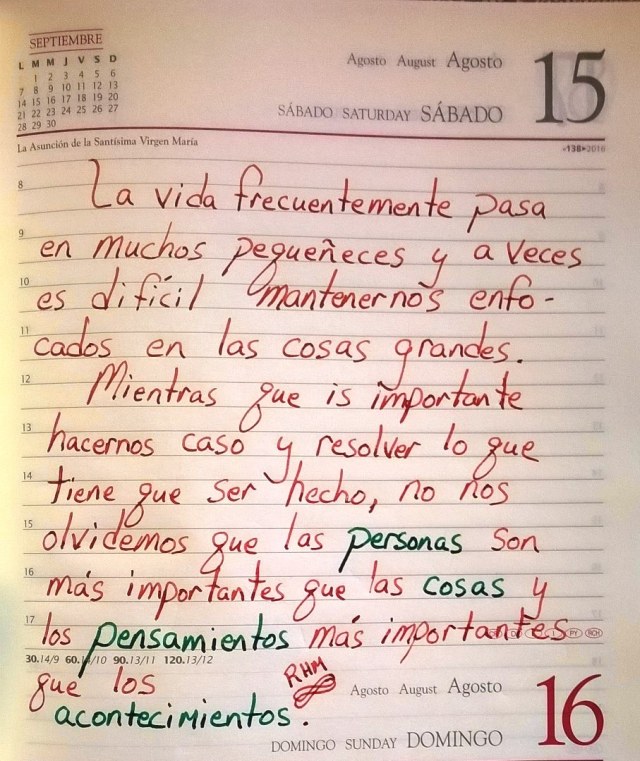 SEPTIEMBRE
L M M J V S D
1 2 3 4 5 6
7 8 9 10 11 12 13
14 15 16 17 18 19 20
21 22 23 24 25 26 27
28 29 30
Agosto August Agosto 15
SÁBADO SATURDAY SÁBADO
La Asunción de la Santísima Virgen María
8 La vida frecuentemente pasa
9 en muchos pequeñeces y a veces
10 es difícil mantenernos enfo-
11 cados en las cosas grandes.
12 Mientras que is importante
13 hacernos caso y resolver lo que
14 tiene que ser hecho, no nos
15 olvidemos que las personas son
16 más importantes que las cosas y
17 los pensamientos más importantes
30.14/9 60.14/10 90.13/11 120.13/12
que los RHM
acontecimientos.
Agosto August Agosto 16
DOMINGO SUNDAY DOMINGO